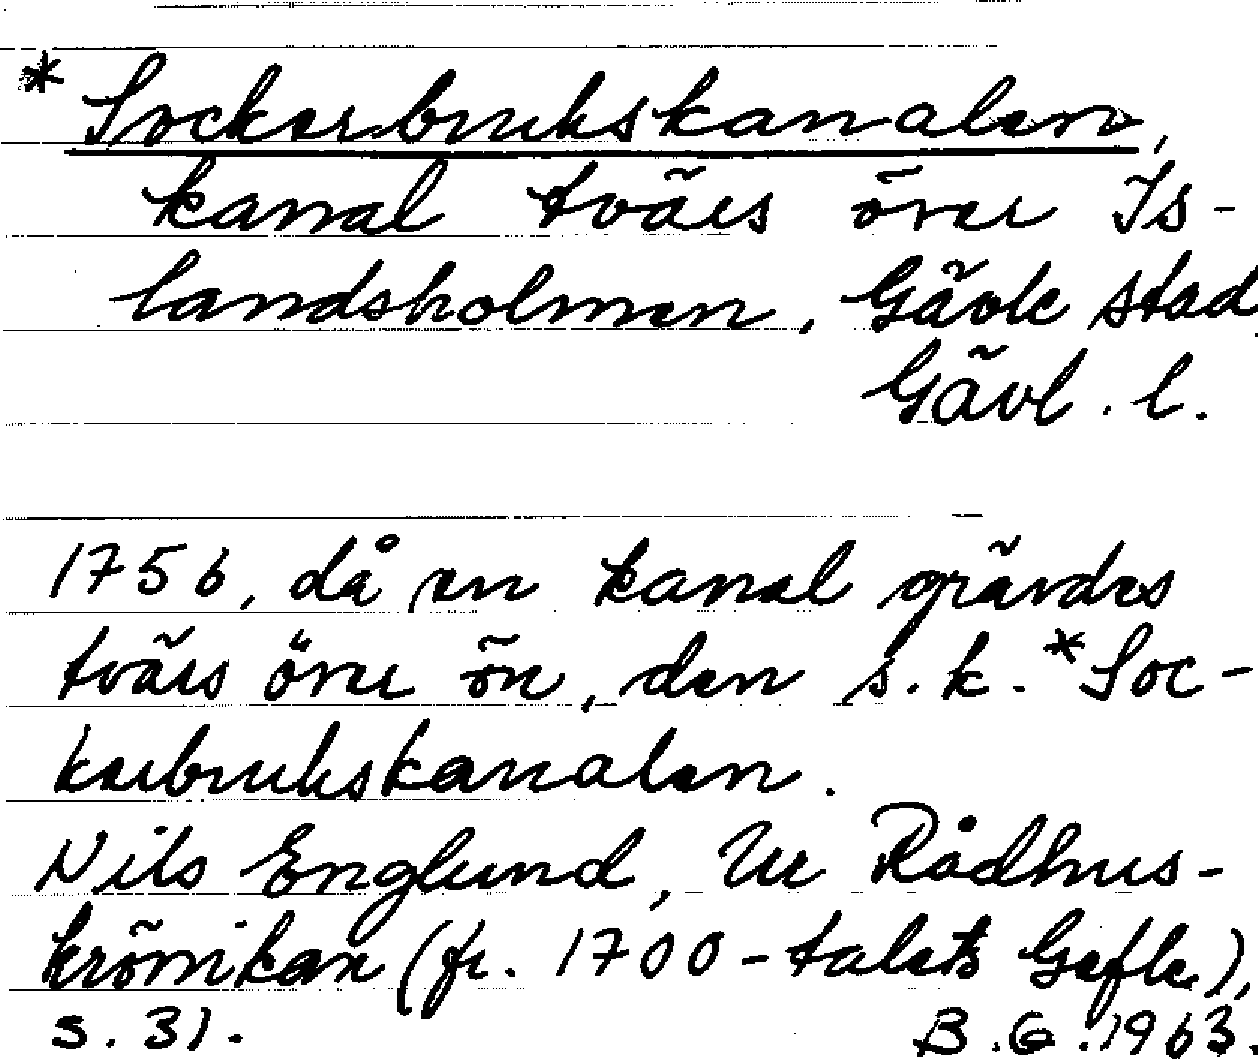 * Sockerbrukskanalen,
kanal tvärs över Is-
landsholmen, Gävle stad
Gävl. l.
1756, då en kanal grävdes
tvärs över ön, den s.k. *Soc-
kerbrukskanalen.
Nils Englund, Ur Rådhus-
krönikan (fr. 1700-talets Gefle),
s. 31. B.G. 1963.